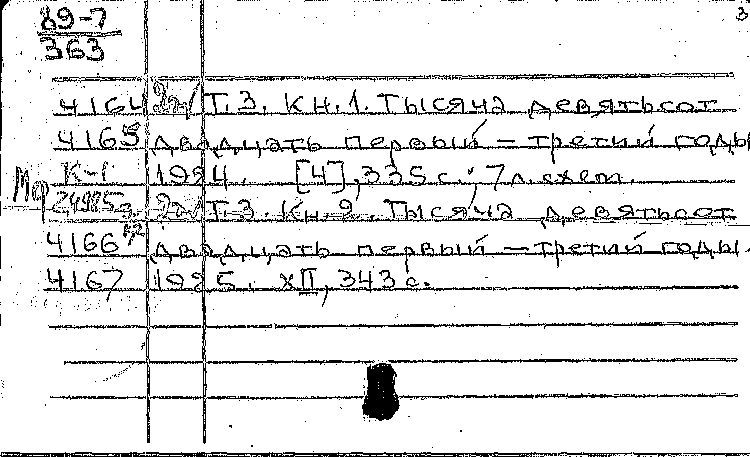 89-7
363
3
4164 2эк Т.3. Кн.1. Тысяча девятьсот
4165 двадцать первый – третий годы
К-1 1924. [4], 335 с.; 7 л. схем.
Мф 24985э 2эк Т.3. Кн.2. Тысяча девятьсот
4166 двадцать первый – третий годы.
4167 1925. XII, 343 с.